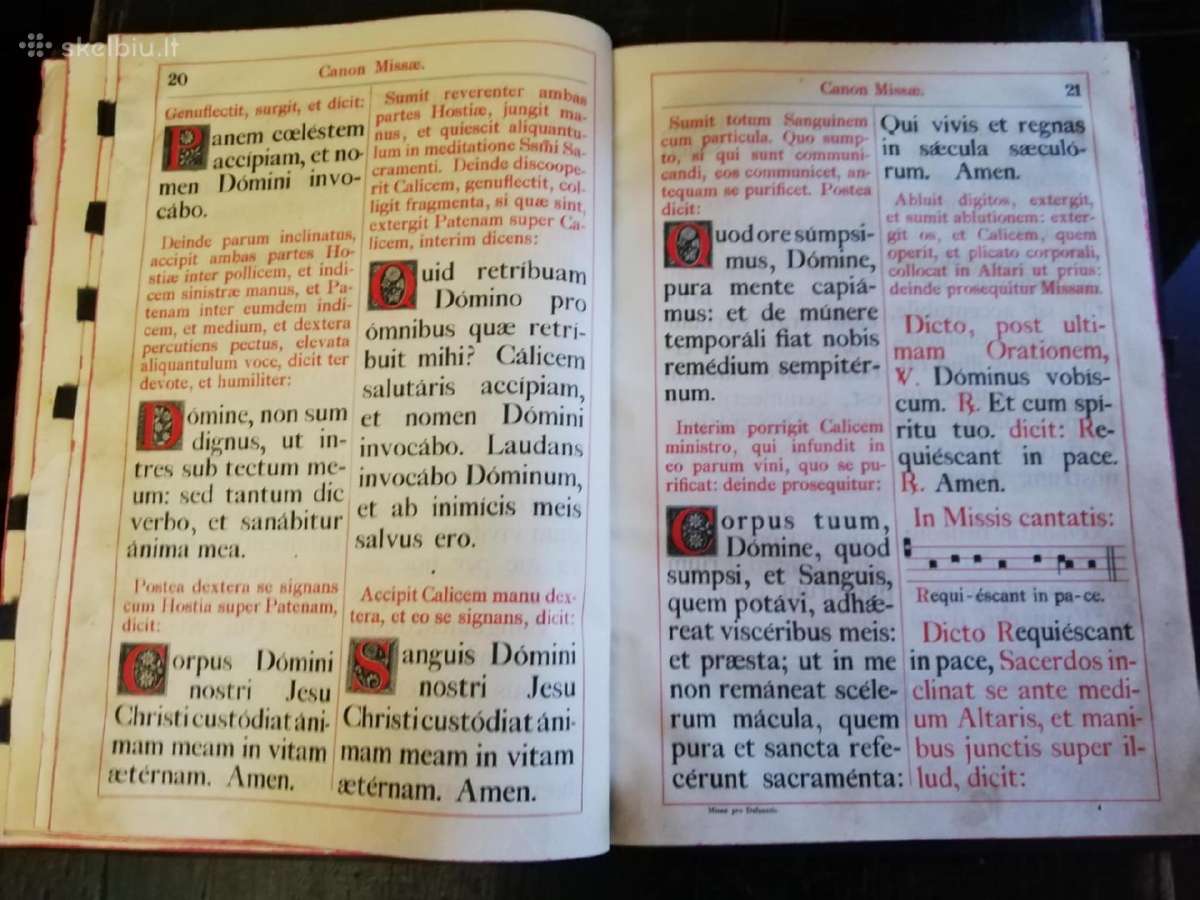 skelbiu.lt
20
Canon Missæ.
Genuflectit, surgit, et dicit:
Panem cœléstem
accípiam, et no-
men Dómini invo-
cábo.
Deinde parum inclinatus,
accipit ambas partes Ho-
stiæ inter pollicem, et indi-
cem sinistræ manus, et Pa-
tenam inter eumdem indi-
cem, et medium, et dextera
percutiens pectus, elevata
aliquantulum voce, dicit ter
devote, et humiliter:
Dómine, non sum
dignus, ut in-
tres sub tectum me-
um: sed tantum dic
verbo, et sanábitur
ánima mea.
Postea dextera se signans
cum Hostia super Patenam,
dicit:
Corpus Dómini
nostri Jesu
Christi custódiat áni-
mam meam in vitam
ætérnam. Amen.
Sumit reverenter ambas
partes Hostiæ, jungit ma-
nus, et quiescit aliquantu-
lum in meditatione Ssmi Sa-
cramenti. Deinde discoope-
rit Calicem, genuflectit, col-
ligit fragmenta, si quæ sint,
extergit Patenam super Ca-
licem, interim dicens:
Quid retríbuam
Dómino pro
ómnibus quæ retrí-
buit mihi? Cálicem
salutáris accípiam,
et nomen Dómini
invocábo. Laudans
invocábo Dóminum,
et ab inimícis meis
salvus ero.
Accipit Calicem manu dex-
tera, et eo se signans, dicit:
Sanguis Dómini
nostri Jesu
Christi custódiat áni-
mam meam in vitam
ætérnam. Amen.
Canon Missæ.
21
Sumit totum Sanguinem
cum particula. Quo sump-
to, si qui sunt communi-
candi, eos communicet, an-
tequam se purificet. Postea
dicit:
Quod ore súmpsi-
mus, Dómine,
pura mente capiá-
mus: et de múnere
temporáli fiat nobis
remédium sempitér-
num.
Interim porrigit Calicem
ministro, qui infundit in
eo parum vini, quo se pu-
rificat: deinde prosequitur:
Corpus tuum,
Dómine, quod
sumpsi, et Sanguis,
quem potávi, adhǽ-
reat viscéribus meis:
et præsta; ut in me
non remáneat scéle-
rum mácula, quem
pura et sancta refe-
cérunt sacraménta:
Qui vivis et regnas
in sǽcula sæculó-
rum. Amen.
Abluit digitos, extergit,
et sumit ablutionem: exter-
git os, et Calicem, quem
operit, et plicato corporali,
collocat in Altari ut prius:
deinde prosequitur Missam.
Dicto, post ulti-
mam Orationem,
℣. Dóminus vobís-
cum. ℟. Et cum spí-
ritu tuo. dicit: Re-
quiéscant in pace.
℟. Amen.
In Missis cantatis:
Requi-éscant in pa-ce.
Dicto Requiéscant
in pace, Sacerdos in-
clinat se ante medi-
um Altaris, et mani-
bus junctis super il-
lud, dicit:
Missæ pro Defunctis
4